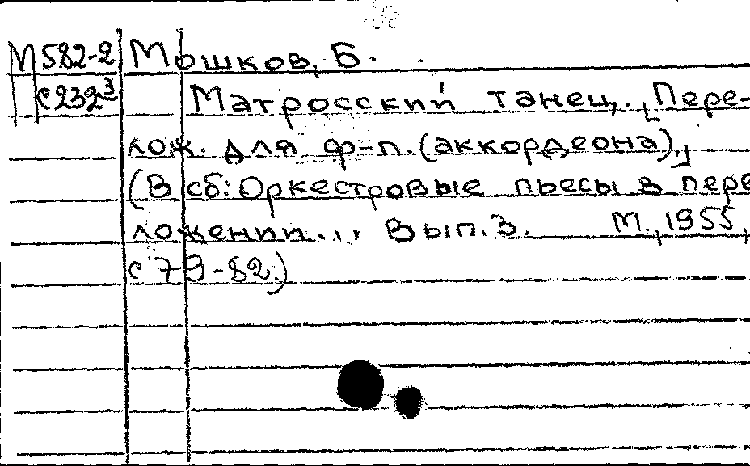 М582-2 Мошков, Б.
с232³ Матросский танец. [Пере-
лож. для ф-п. (аккордеона).]
(В сб: Оркестровые пьесы в пере
ложении... Вып.3. М., 1955,
с 79-82.)